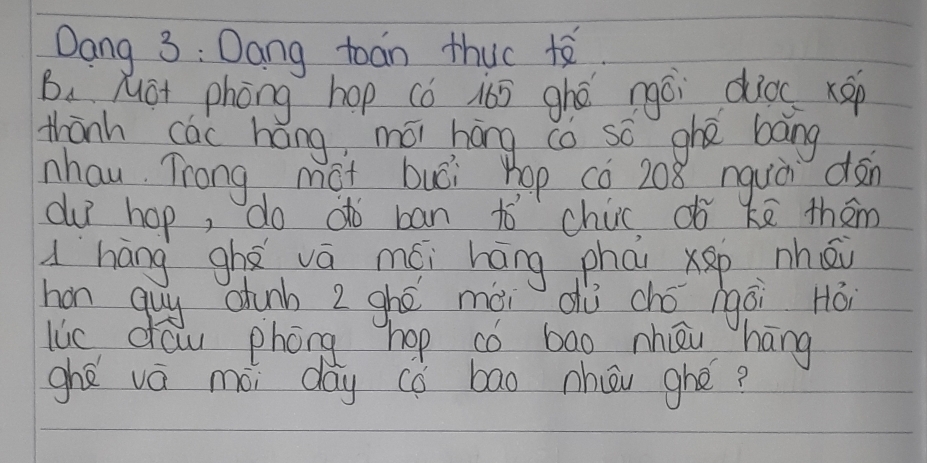 Dạng 3: Dạng toán thực tế.
B1. Một phòng họp có 165 ghế ngồi được xếp
thành các hàng, mỗi hàng có số ghế bằng
nhau. Trong một buổi họp có 208 người đến
dự họp, do đó ban tổ chức đã kê thêm
1 hàng ghế và mỗi hàng phải xếp nhiều
hơn quy định 2 ghế mới đủ chỗ ngồi Hỏi
lúc đầu phòng họp có bao nhiêu hàng
ghế và mỗi dãy có bao nhiêu ghế?